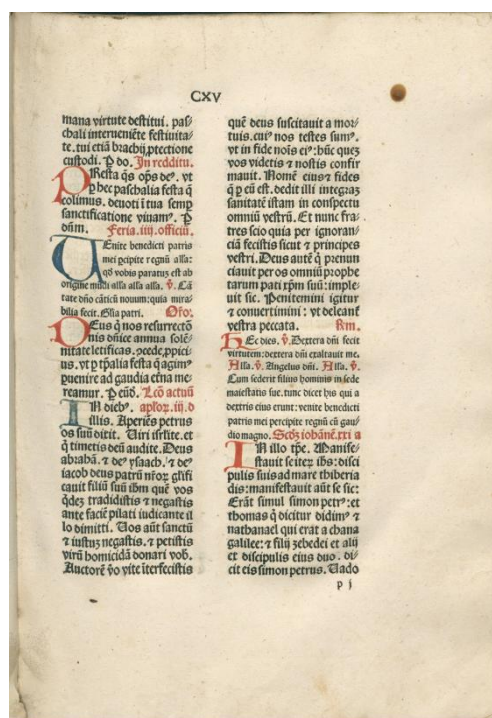 CXV
mana virtute destitui. pas⸗
chali interueniẽte festiuita⸗
te. tui etiã brachij ꝓtectione
custodi. Ꝑ do. In redditu.
PResta q̃s op̃s de⁹. vt
ꝑ hec paschalia festa q̃
colimus. deuoti ĩ tua semꝑ
sanctificatione viuam⁹. Ꝑ
dñm. Feria.iiij.officiũ.
VEnite benedicti patris
mei ꝑcipite regnũ alla:
qď vobis paratuȝ est ab
origine mũdi alla alla alla. v̄. Cã
tate dño cãticũ nouum: quia mira⸗
bilia fecit. Glia patri. Oro.
DEus q̃ nos resurrectõ
nis dñice annua solẽ⸗
nitate letificas. ꝓcede ꝓpici⸗
us. vt ꝑ tp̃alia festa q̃ agim⁹
ꝑuenire ad gaudia etña me⸗
reamur. Ꝑ eũď. Lcõ actuũ
IN dieb⁹. apl̃oꝝ.iij.d
illis. Aperiẽs petrus
os suũ dixit. Uiri isrl̃ite. et
q̃ timetis deũ audite. Deus
abrahã. ⁊ de⁹ ysaach. ⁊ de⁹
iacob deus patrũ nr̃oꝝ glifi
cauit filiũ suũ ihm quẽ vos
q̇deȝ tradidistis ⁊ negastis
ante faciẽ pilati iudicante il
lo dimitti. Uos aũt sanctũ
⁊ iustuȝ negastis. ⁊ petistis
virũ homicidã donari vob̃.
Auctorẽ v̊o vite ĩterfecistis
quẽ deus suscitauit a mor⸗
tuis. cui⁹ nos testes sum⁹.
⁊t in fide nõis ei⁹: hũc queȝ
vos videtis ⁊ nostis confir
mauit. Nomẽ eius ⁊ fides
q̃ ꝑ eũ est. dedit illi integraȝ
sanitatẽ istam in conspectu
omniũ vestrũ. Et nunc fra⸗
tres scio quia per ignoran⸗
ciã fecistis sicut ⁊ principes
vestri. Deus autẽ q̃ prenun
ciauit per os omniũ prophe
tarum pati xp̃m suũ: imple⸗
uit sic. Penitemini igitur
⁊ conuertimini: vt deleant̃
vestra peccata. Rm̃.
HEc dies. v̄. Dextera dñi fecit
virtutem: dextera dñi exaltauit me.
Alla. v̄. Angelus dñi. Alla. v̄.
Cum sederit filius hominis in sede
maiestatis sue. tunc dicet his qui a
dextris eius erunt: venite benedicti
patris mei percipite regnũ cũ gau⸗
dio magno. Scďȝ iohãnẽ.xxi a
IN illo tp̃e. Manife⸗
stauit se iteꝝ ihs: disci
pulis suis ad mare thiberia
dis: manifestauit aũt se sic:
Erãt simul simon petr⁹: et
thomas q̃ dicitur didim⁹ ⁊
nathanael qui erat a chana
galilee: ⁊ filij zebedei et alij
ex discipulis eius duo. di⸗
cit eis simon petrus. Uado
p j